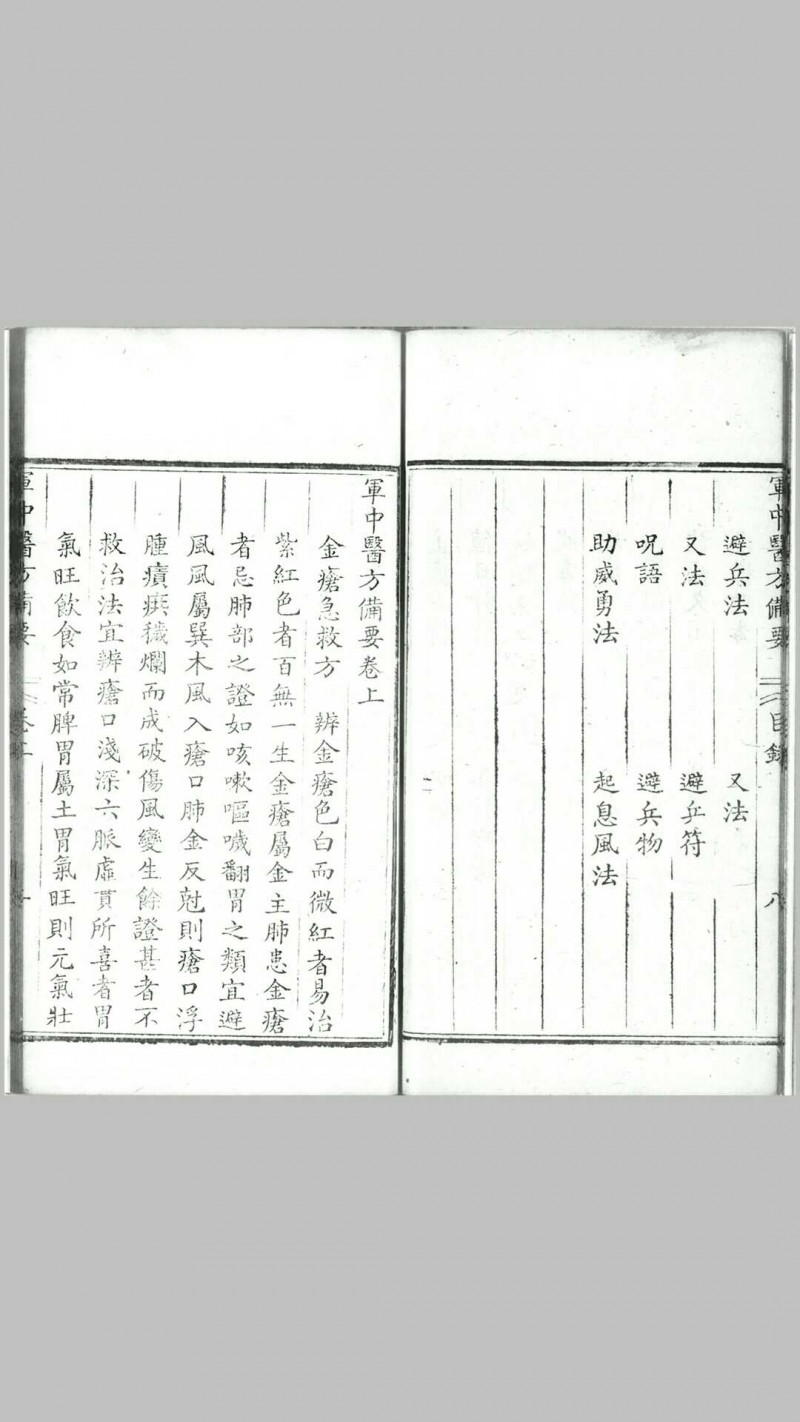 軍中醫方備要
目錄
八
避兵法
又法
又法
避兵符
呪語
避兵物
助威勇法
起息風法
軍中醫方備要卷上
金瘡急救方　辨金瘡色白而微紅者易治
紫紅色者百無一生金瘡屬金主肺患金瘡
者忌肺部之證如咳嗽嘔噦翻胃之類宜避
風風屬巽木風入瘡口肺金反尅則瘡口浮
腫癀瘼穢爛而成破傷風變生餘證甚者不
救治法宜辨瘡口淺深六脈虛實所喜者胃
氣旺飲食如常脾胃屬土胃氣旺則元氣壯
軍中醫方備要
卷上
一